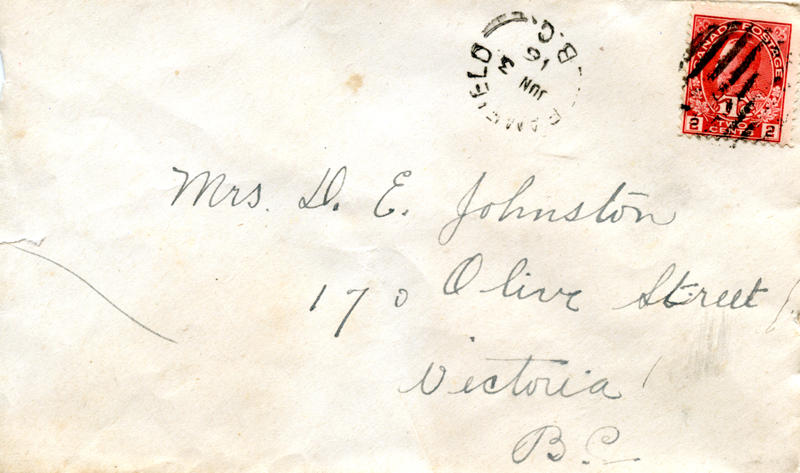 BAMFIELD
B.C.
JUN 3
16
CANADA POSTAGE
1T
2 TWO CENTS 2
Mrs. D. E. Johnston
170 Olive Street
Victoria
B.C.